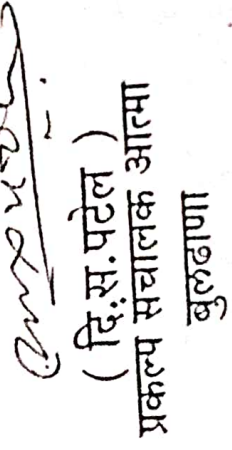 ( दि.स.पटेल )
प्रकल्प संचालक आत्मा
बुलढाणा